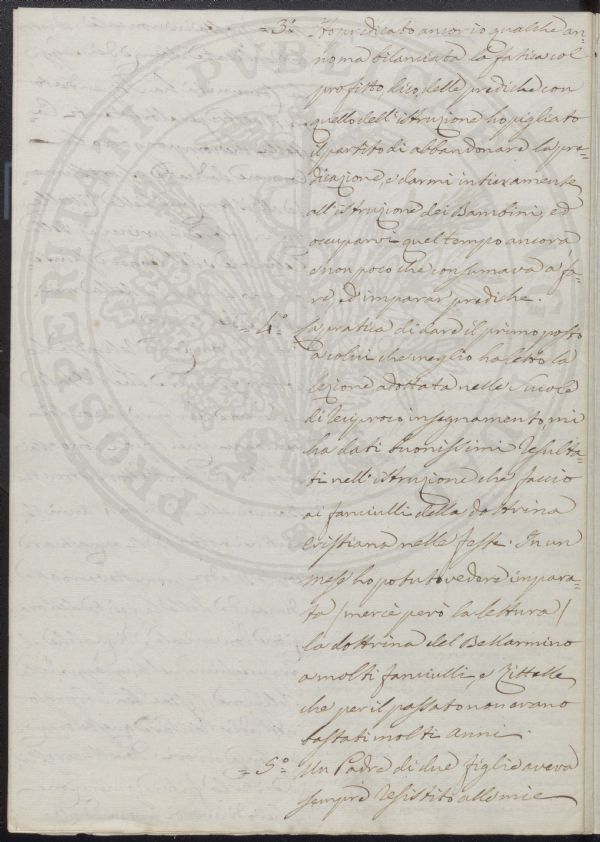 = 3.° Ho predicato ancor io qualche an=
no ma bilanciata la fatica col
profitto dico, delle prediche con
quello dell'istruzione ho pigliato
il partito di abbandonare la pre=
dicazione, e darmi intieramente
all'istruzione dei Bambini, ed
occuparvi quel tempo ancora
e non poco che consumava a fa=
re, ed imparar prediche.
= 4.° La pratica di dare il primo posto
a colui che meglio ha letto la
lezione adottata nelle Scuole
di reciproco insegnamento, mi
ha dati buonissimi resulta=
ti nell'istruzione che faccio
ai fanciulli della dottrina
Cristiana nelle feste. In un
mese ho potuto vedere impara=
ta (mercè però la lettura)
la dottrina del Bellarmino
a molti fanciulli, e Zittelle
che per il passato non erano
bastati molti anni.
= 5.° Un Padre di due figlie aveva
sempre resistito alle mie
PROSPERITATI PVBLICAE